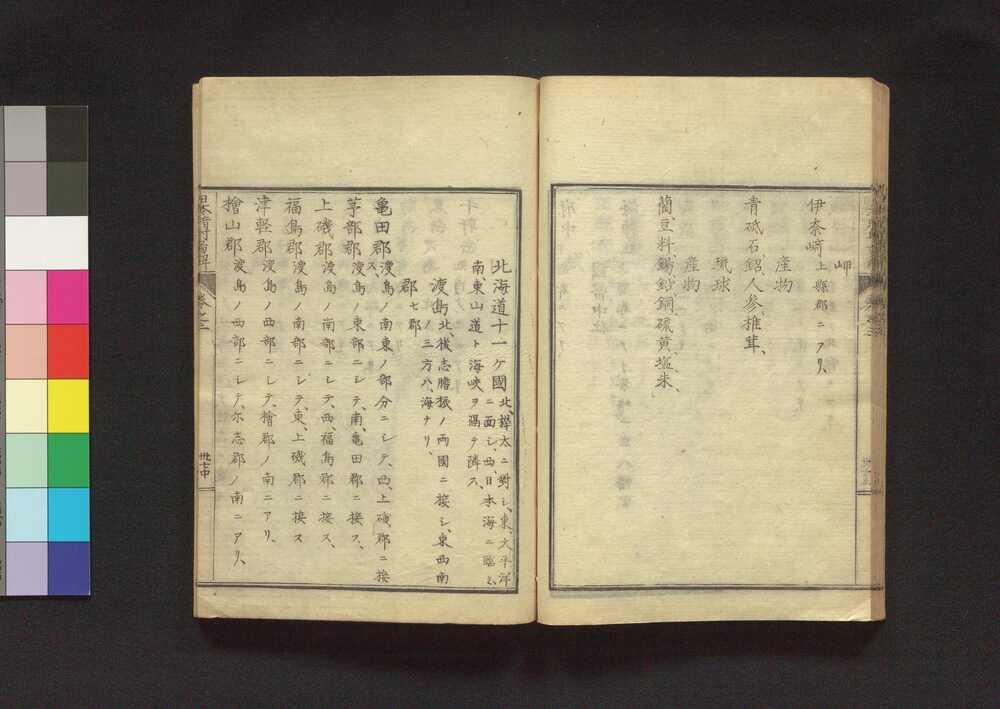 岬
伊奈崎上縣郡ニアリ、
産物
青砥石鉊、人参、推茸、
琉球
産物
藺、豆、料、錫、鉛、銅、硫黄、塩、朱、
北海道十一ケ國北、樺太ニ對シ、東、大平洋
ニ面シ、西、日本海ニ臨ミ、
南、東山道ト海峽ヲ隔テ隣ス、
渡島北、後志膽振ノ両國ニ接シ、東西南
ノ三方ハ、海ナリ、
郡七郡
亀田郡渡島ノ南東ノ部分ニシテ、西、上磯郡ニ接
ス、
茅部郡渡島ノ東部ニシテ、南、亀田郡ニ接ス、
上磯郡渡島ノ南部ニシテ、西、福島郡ニ接ス、
福島郡渡島ノ南部ニシテ、東、上磯郡ニ接ス
津軽郡渡島ノ西部ニシテ、檜郡ノ南ニアリ、
檜山郡渡島ノ西部ニシテ、尓志郡ノ南ニアリ、
卷之三